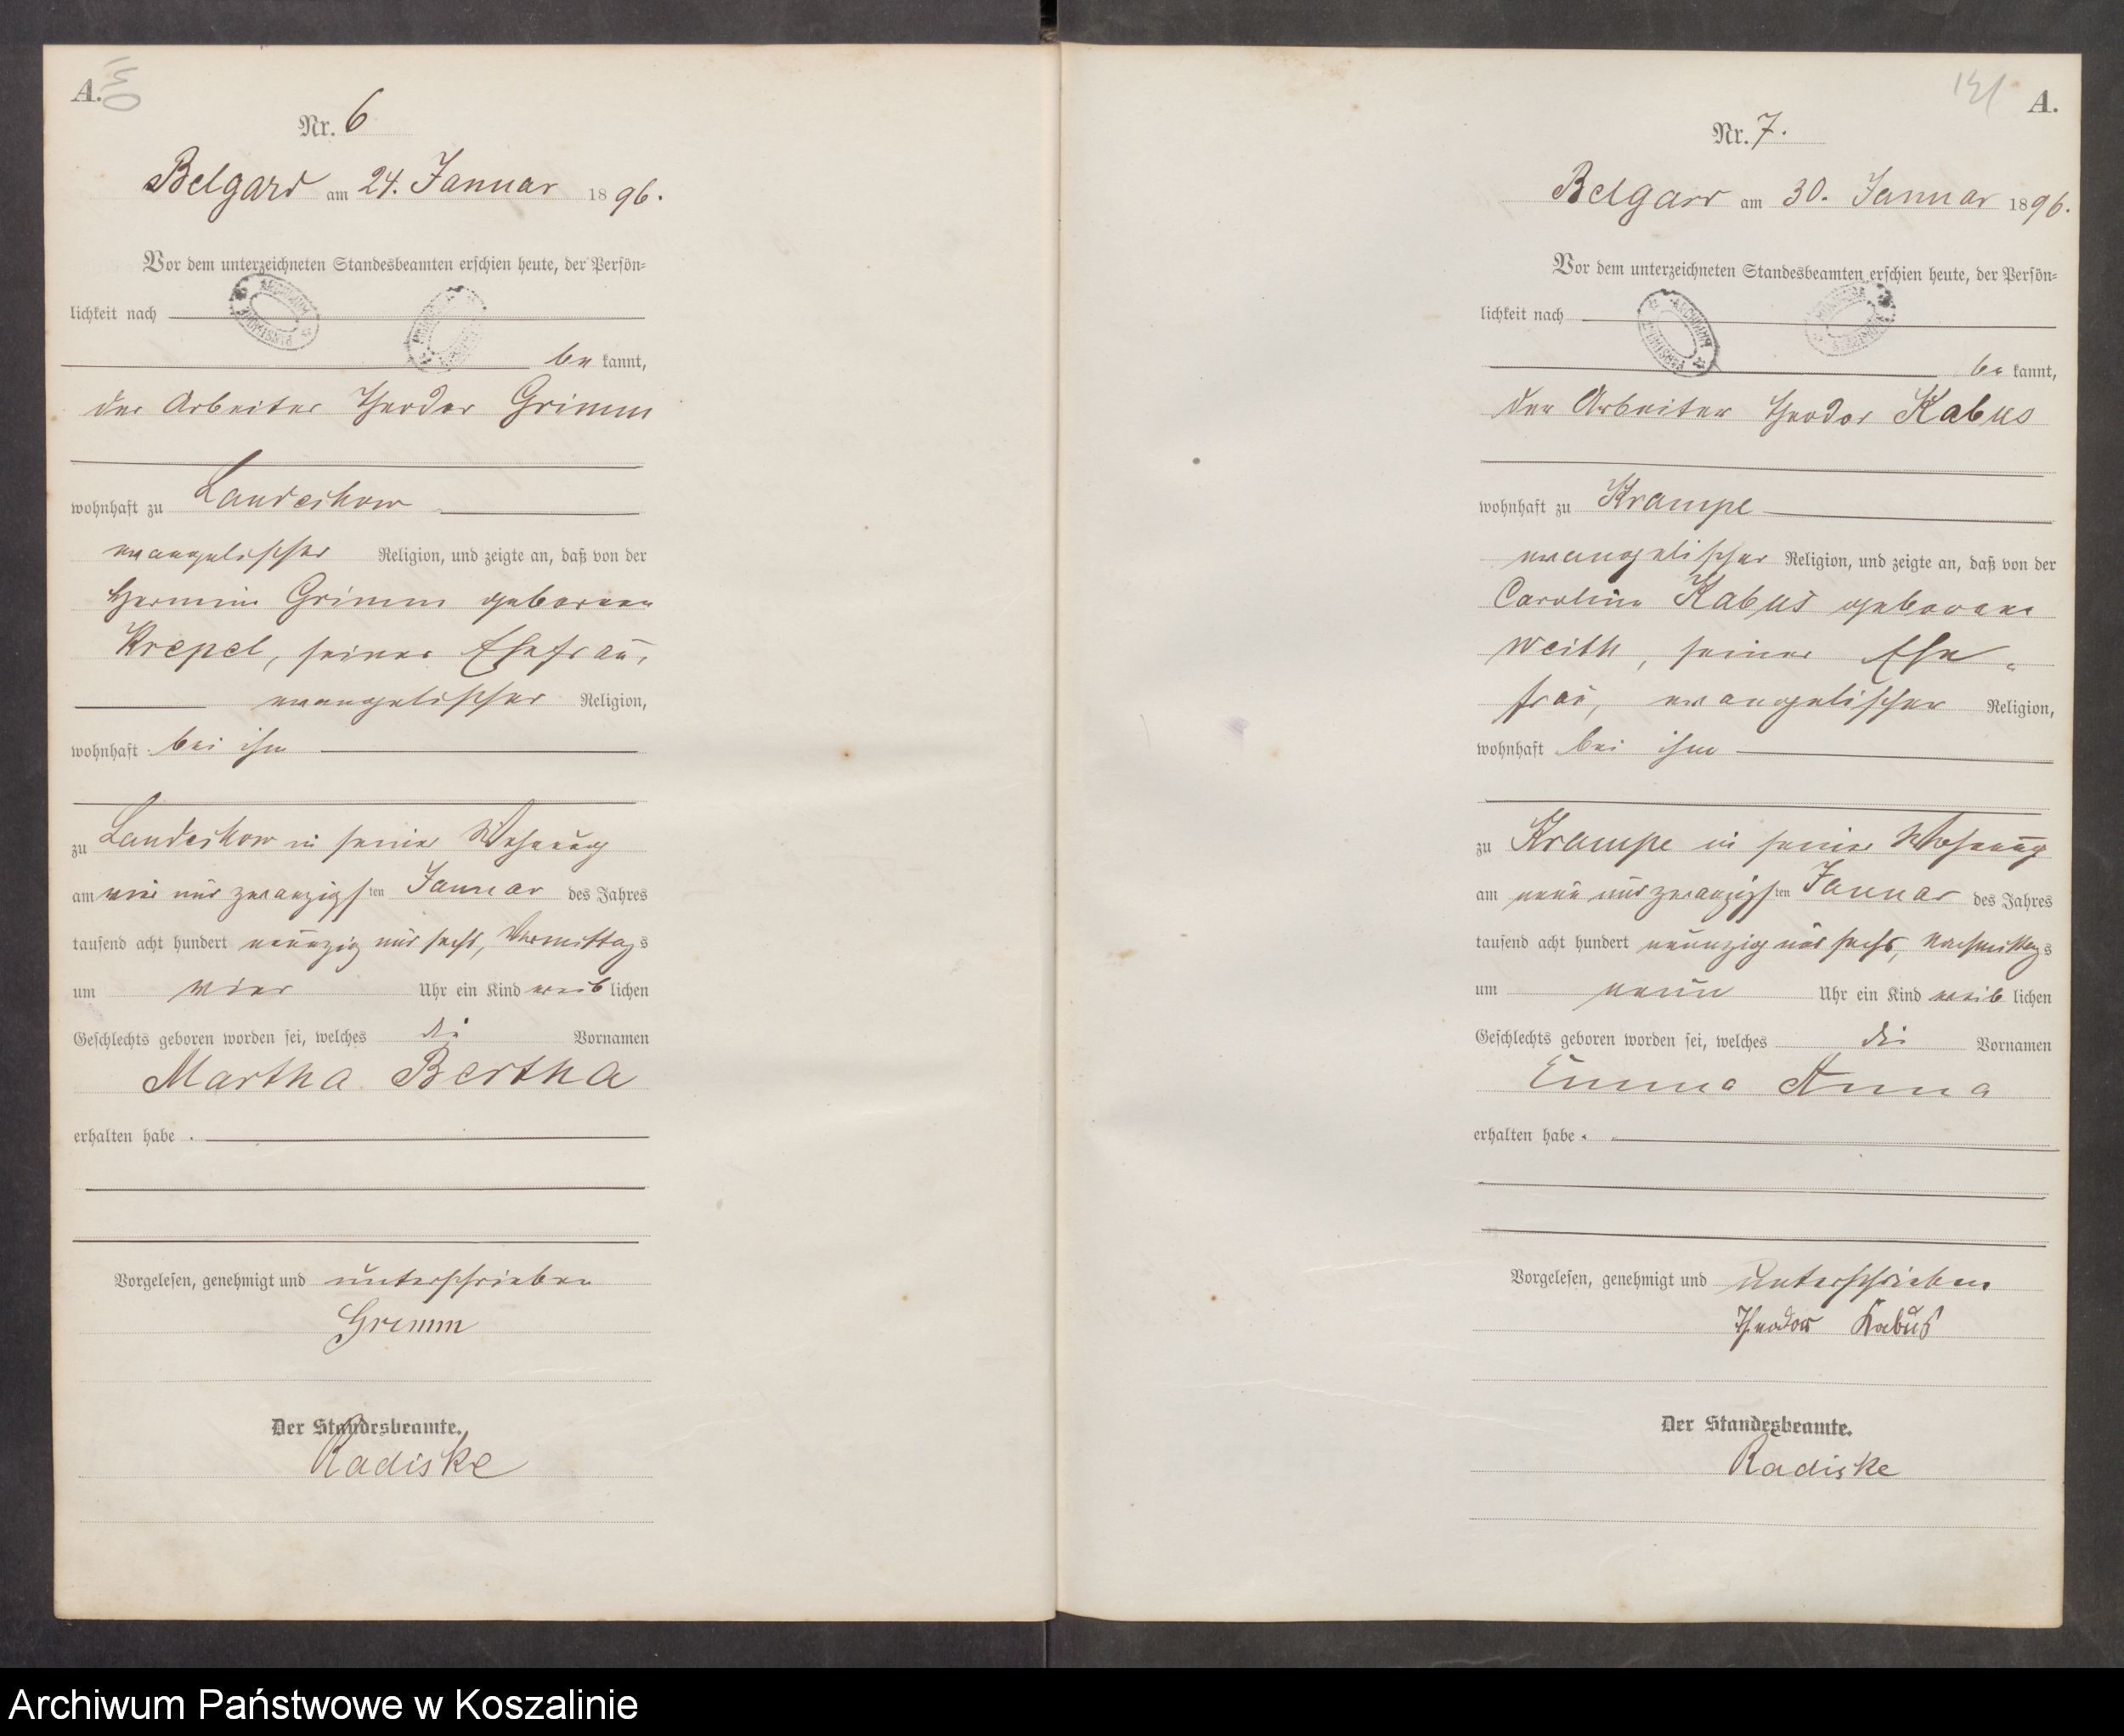 A.
Nr. 6
Belgard am 24. Januar 1896.
Vor dem unterzeichneten Standesbeamten erschien heute, der Persön-
lichkeit nach
be kannt,
der Arbeiter Theodor Grimm
wohnhaft zu Landeskow
evangelischer Religion, und zeigte an, daß von der
Hermine Grimm geborenen
Krepel, seiner Ehefrau,
evangelischer Religion,
wohnhaft bei ihm
zu Landeskow in seiner Wohnung
am vier und zwanzigsten Januar des Jahres
tausend acht hundert neunzig und sechs, Vormittags
um vier Uhr ein Kind weiblichen
Geschlechts geboren worden sei, welches die Vornamen
Martha Bertha
erhalten habe.
Vorgelesen, genehmigt und unterschrieben
Grimm
Der Standesbeamte.
Radiske
151 A.
Nr. 7.
Belgard am 30. Januar 1896.
Vor dem unterzeichneten Standesbeamten erschien heute, der Persön-
lichkeit nach
be kannt,
der Arbeiter Theodor Kabus
wohnhaft zu Krampe
evangelischer Religion, und zeigte an, daß von der
Caroline Kabus geborene
Weith, seiner Ehe-
frau, evangelischer Religion,
wohnhaft bei ihm
zu Krampe in seiner Wohnung
am neun und zwanzigsten Januar des Jahres
tausend acht hundert neunzig und sechs, Nachmittags
um neun Uhr ein Kind weiblichen
Geschlechts geboren worden sei, welches die Vornamen
Emma Anna
erhalten habe.
Vorgelesen, genehmigt und unterschrieben
Theodor Kabus
Der Standesbeamte.
Radiske
Archiwum Państwowe w Koszalinie